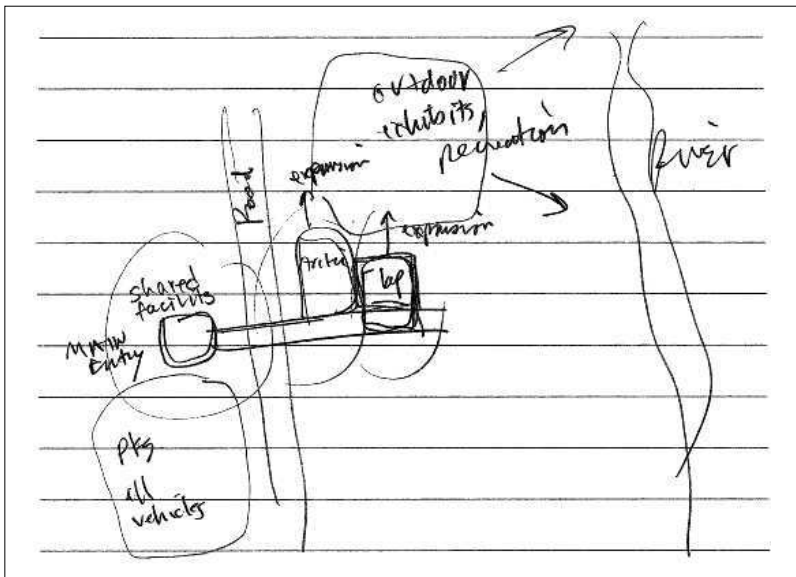 outdoor
exhibits,
recreation
River
Road
expansion
expansion
shared
facilits
MAIN
Entry
pkg
all
vehicles